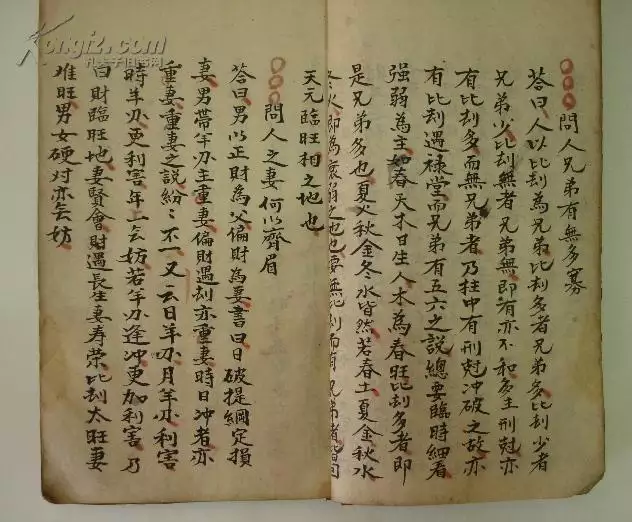 ○○○問人兄弟有無多寡
答曰人以比刦為兄弟比刦多者兄弟多比刦少者
兄弟少比刦無者兄弟無即有亦不和多主刑尅亦
有比刦多而無兄弟者乃柱中有刑尅冲破之故亦
有比刦遇祿堂而兄弟有五六之說總要臨時細看
强弱為主如春天木日生人木為春旺比刦多者即
是兄弟多也夏火秋金冬水皆然若春土夏金秋水
冬火即為衰弱之也要無比刦而有兄弟者皆同
天元臨旺相之地也
○○○問人之妻何以齊眉
答曰男以正財為父偏財為妻書曰日破提綱定損
妻男帶羊刃主重妻偏財遇刦亦重妻時日冲者亦
重妻重妻之說紛々不一又云日羊刃月羊刃利害
時羊刃更利害年上無妨若羊刃逢冲更加利害乃
曰財臨旺地妻賢會財遇長生妻壽榮比刦太旺妻
难旺男女硬对亦無妨
Kongfz.com
孔夫子旧书网